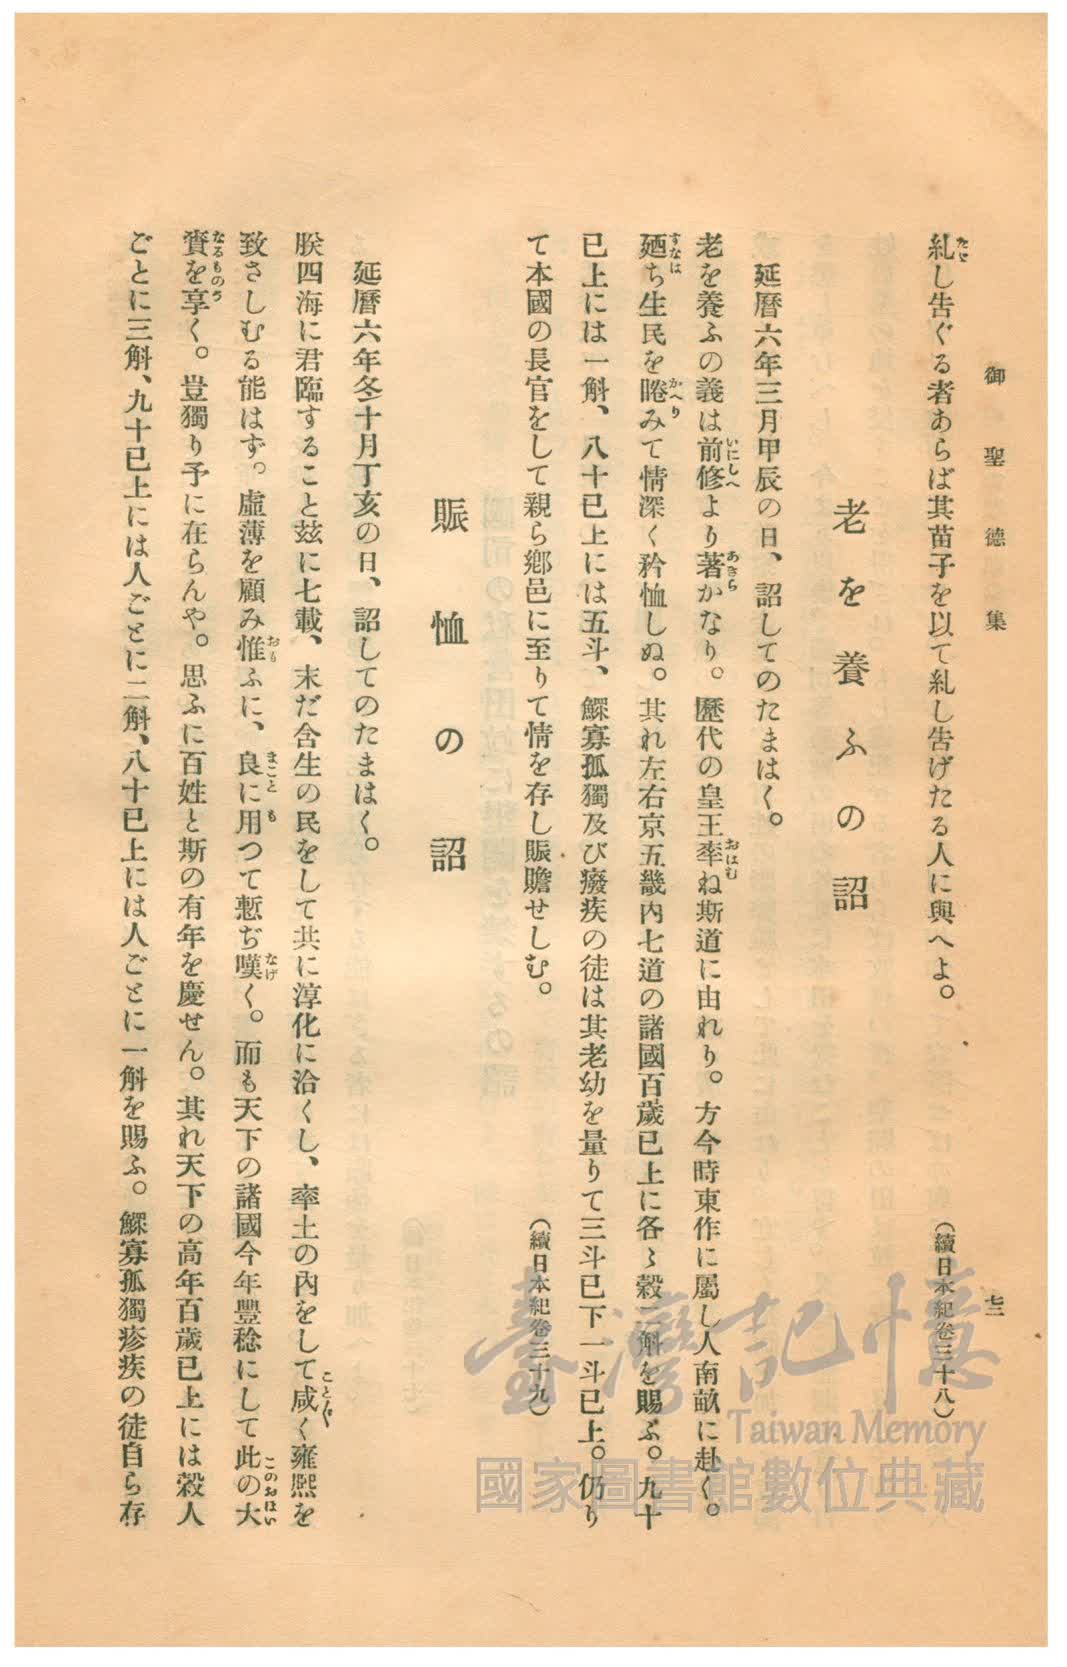 御聖德集
七二
糺し告ぐる者あらば其苗子を以て糺し告げたる人に與へよ。
(續日本紀卷三十八)
老を養ふの詔
延曆六年三月甲辰の日、詔してのたまはく。
老を養ふの義は前修より著かなり。歷代の皇王率ね斯道に由れり。方今時東作に屬し人南畝に赴く。
廼ち生民を睠みて情深く矜恤しぬ。其れ左右京五畿內七道の諸國百歲已上に各〻穀二斛を賜ふ。九十
已上には一斛、八十已上には五斗、鰥寡孤獨及び癈疾の徒は其老幼を量りて三斗已下一斗已上。仍り
て本國の長官をして親ら鄕邑に至りて情を存し賑贍せしむ。
(續日本紀卷三十九)
賑恤の詔
延曆六年冬十月丁亥の日、詔してのたまはく。
朕四海に君臨すること玆に七載、未だ含生の民をして共に淳化に洽くし、率土の內をして咸く雍熙を
致さしむる能はず。虛薄を顧み惟ふに、良に用つて慙ぢ嘆く。而も天下の諸國今年豐稔にして此の大
賚を享く。豈獨り予に在らんや。思ふに百姓と斯の有年を慶せん。其れ天下の高年百歲已上には穀人
ごとに三斛、九十已上には人ごとに二斛、八十已上には人ごとに一斛を賜ふ。鰥寡孤獨疹疾の徒自ら存
臺灣記憶
Taiwan Memory
國家圖書館數位典藏